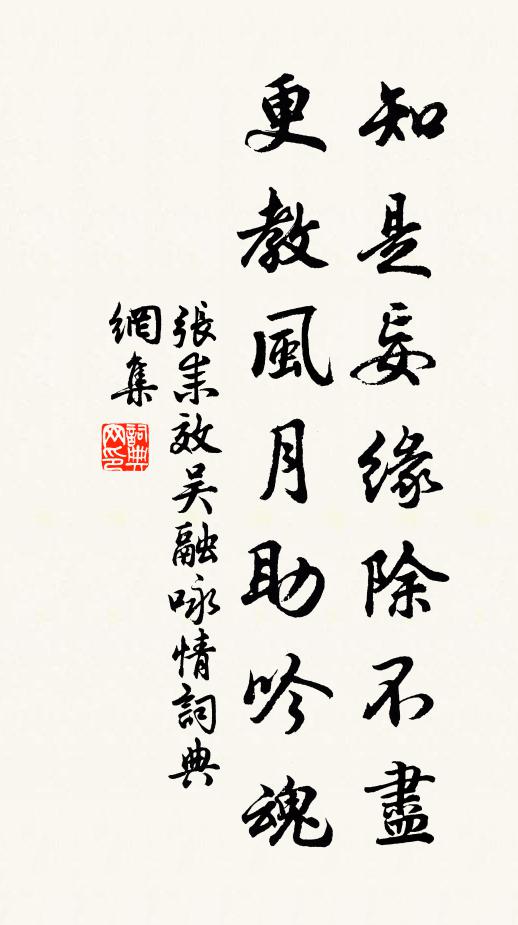 知是妄緣除不盡
更教風月助吟魂
張耒效吳融咏情詞典
網集
詞典網印